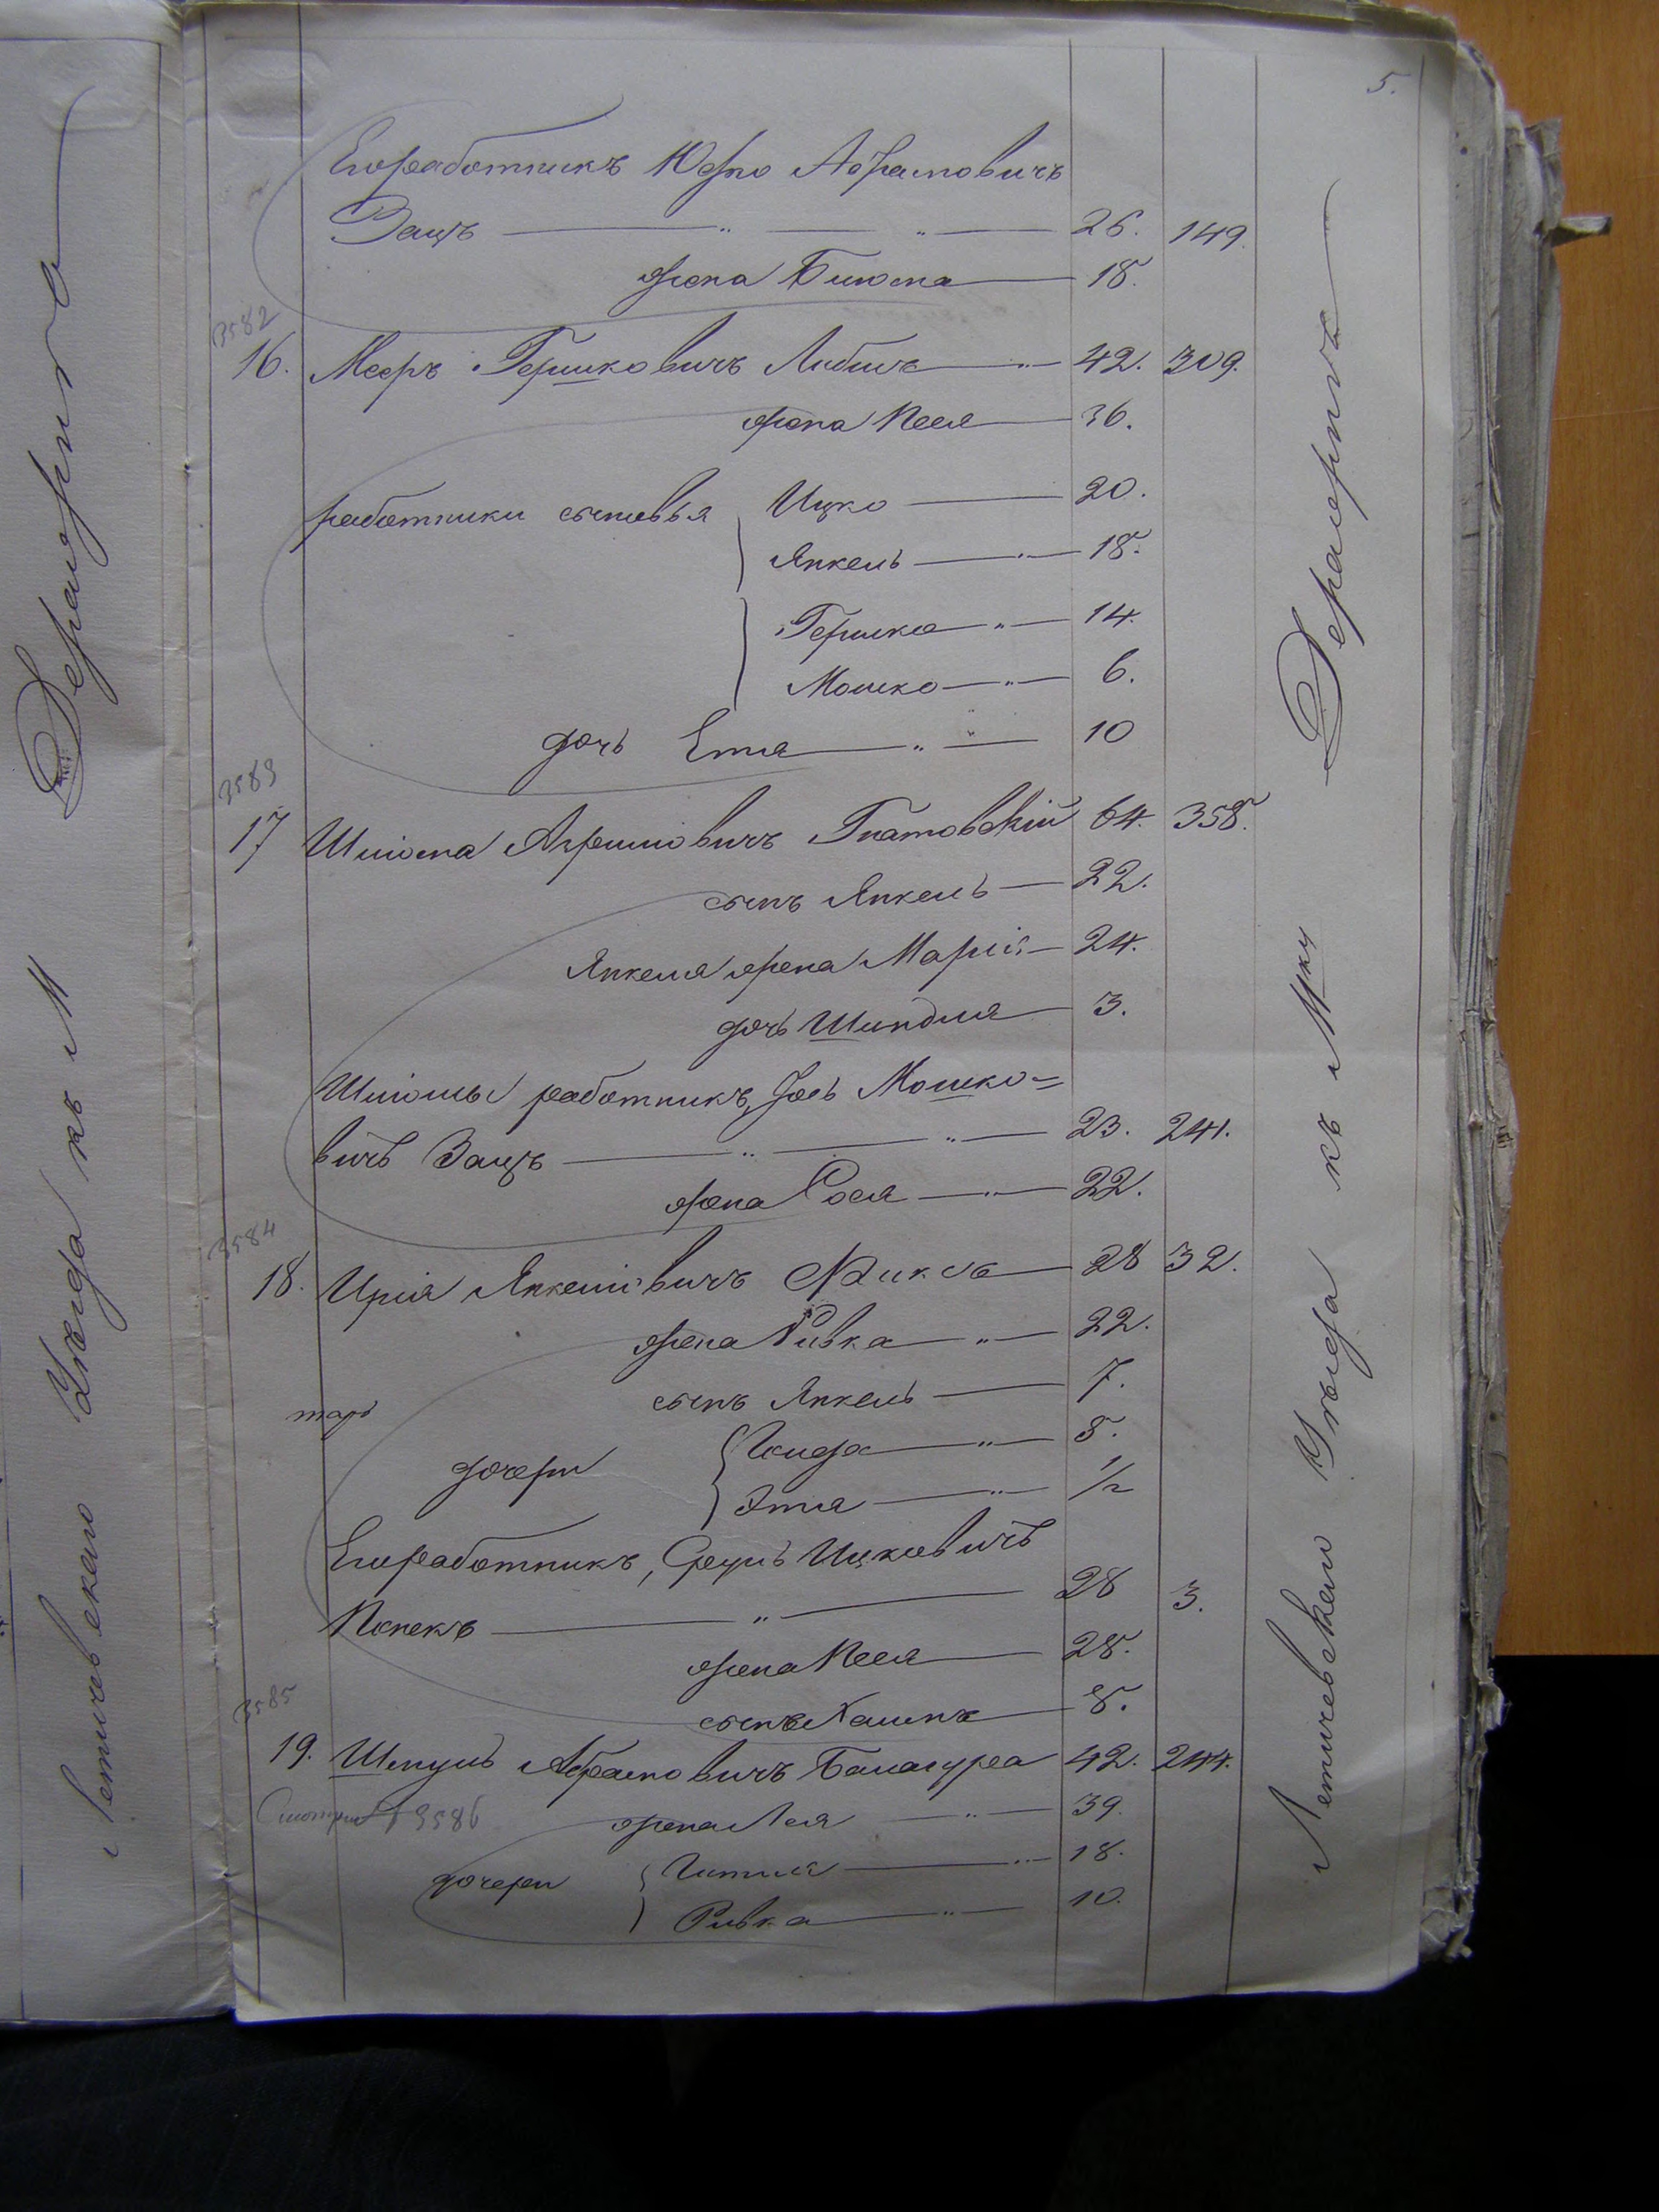 5.
Его работникъ Юфко Абрамовичъ
Зацъ — " — " — 26. 149.
жена Блюма — 18.
3582
16. Мееръ Гершковичъ Либичъ — " — 42. 309.
жена Песя — 36.
работники сыновья Ицко — 20.
Янкель — " — 18.
Гершко — " — 14.
Мошко — " — 6.
дочь Етя — " — " — 10
3583
17 Шліома Абрамовичъ Гнатовскій 64. 358.
сынъ Янкель — 22.
Янкеля жена Марія — 24.
дочь Шиндля — 3.
Шліомы работникъ, Іось Мошко=
вичъ Зацъ — " — " — 23. 241.
жена Сося — " — 22.
3584
18. Янкеліовичъ — 28 32.
жена Ривка — " — 22.
сынъ Янкель — 7.
дочери Голда — " — 5.
Этя — " — 1/2
Его работникъ, Сруль Ицковичъ
— " — 28 3.
жена Песя — 28.
сынъ — 8.
3585
19. Шмуль Абрамовичъ Балагура 42. 244.
Смотри 3586
жена Лея — " — 39.
дочери Гитля — " — 18.
Ривка — " — 10.
Летичевскаго Уѣзда къ М
Летичевскаго Уѣзда къ М<sup>ку</sup> Деражня